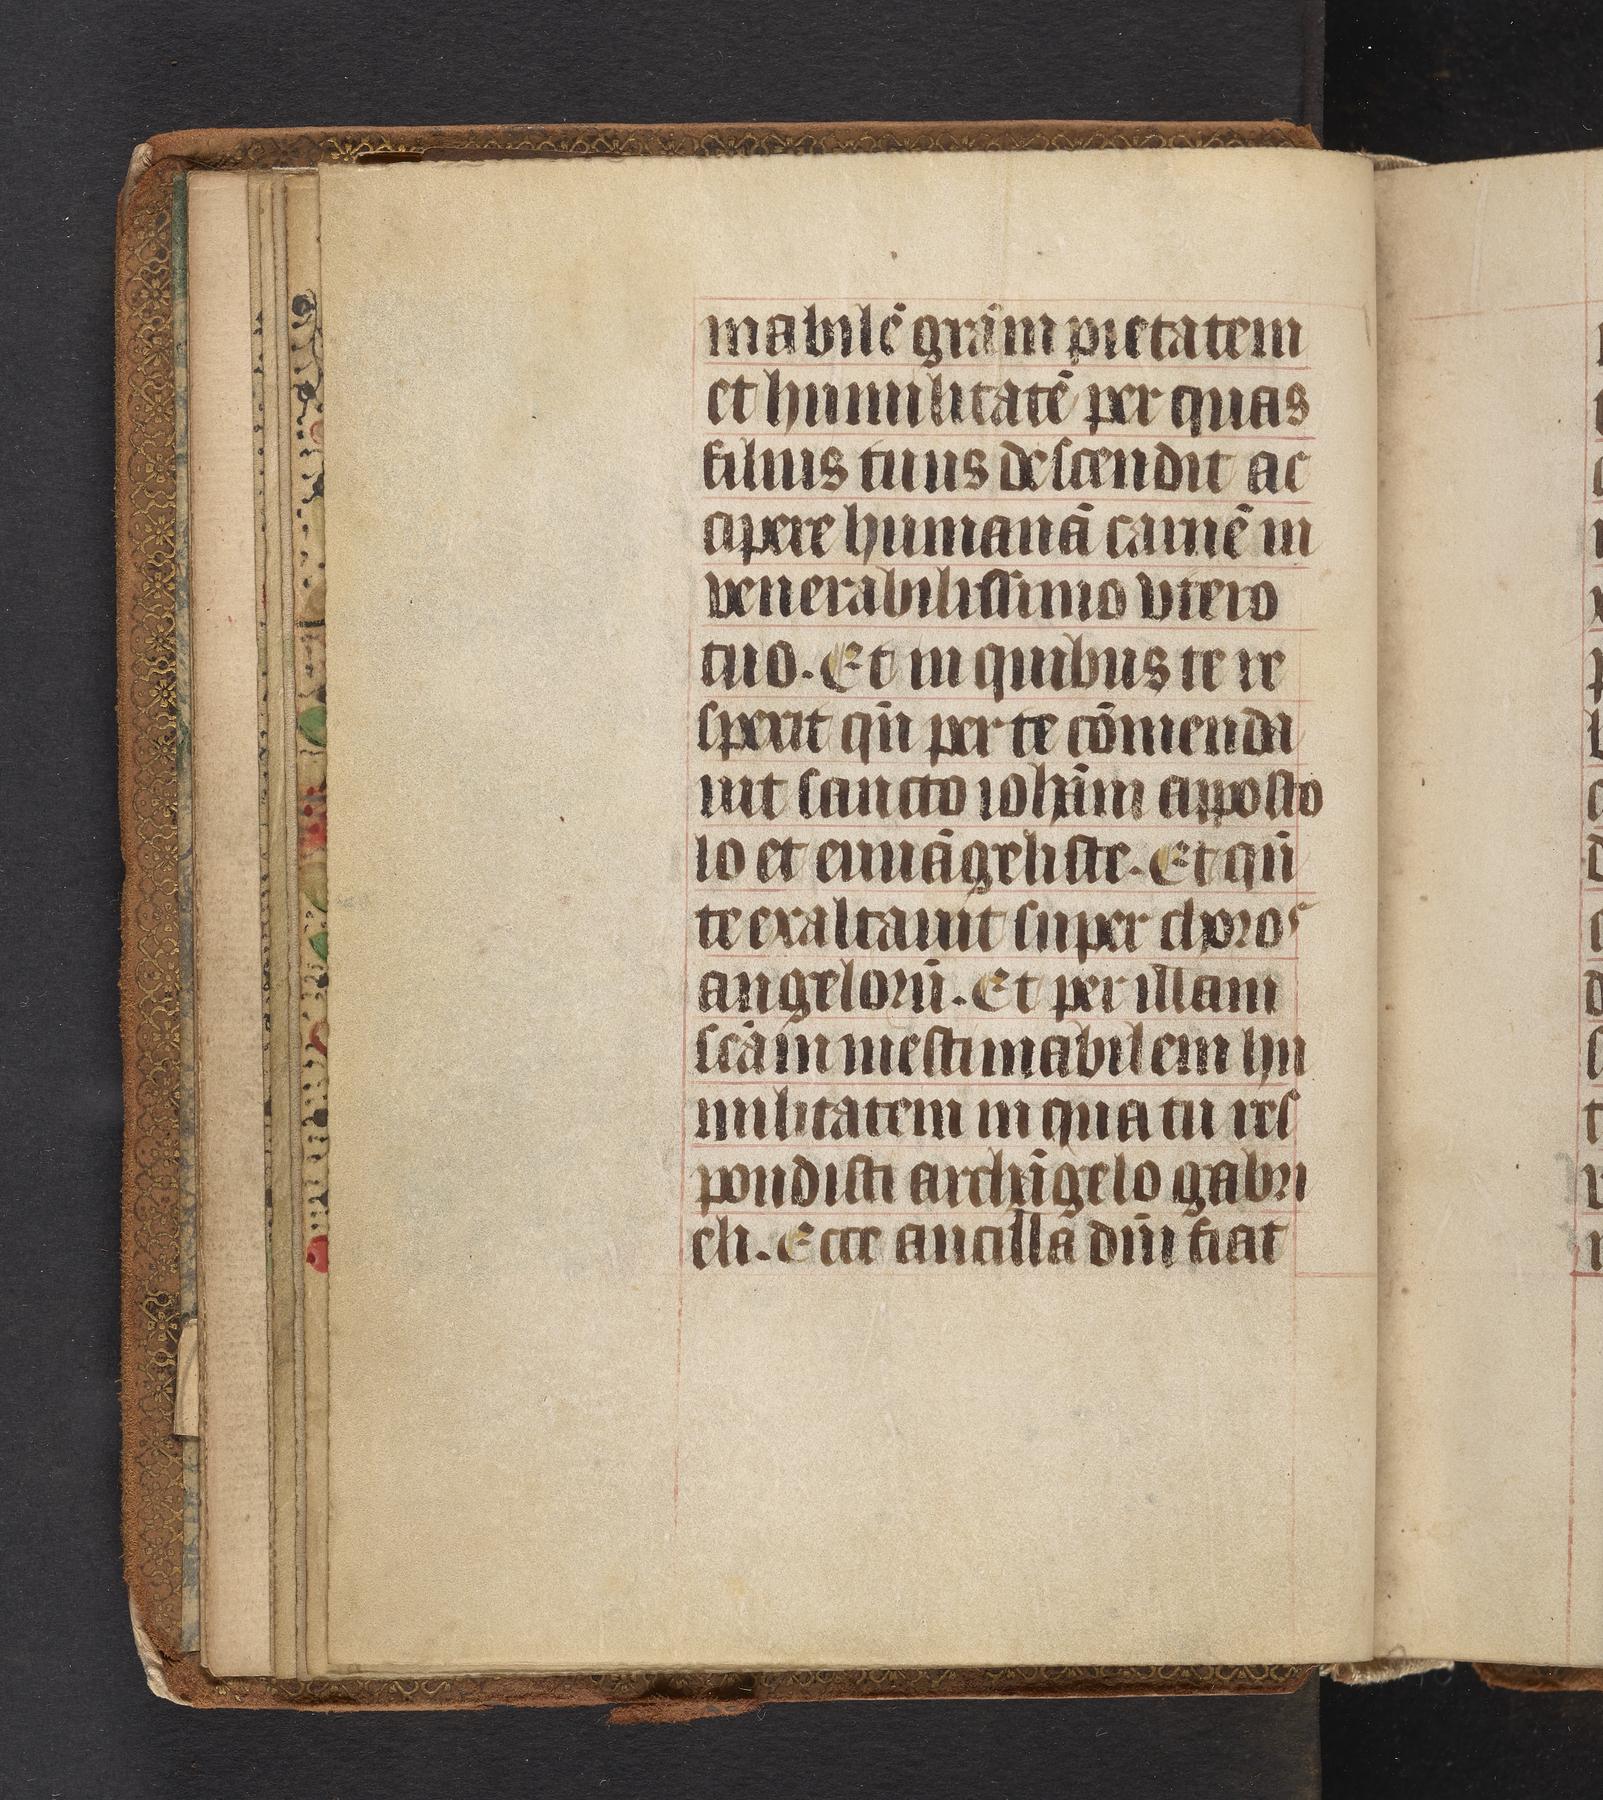 mabilē grām pietatem
et humilitatē per quas
filius tuus descendit ac
cipere humanā carnē in
venerabilissimo vtero
tuo. Et in quibus te re
spexit qn̄ per te cōmenda
uit sancto iohānni apposto
lo et euuāgeliste. Et qn̄
te exaltauit super choros
angelorū. Et per illam
scām inestimabilem hu
militatem in qua tu res
pondisti archāgelo gabri
eli. Ecce ancilla dn̄i fiat